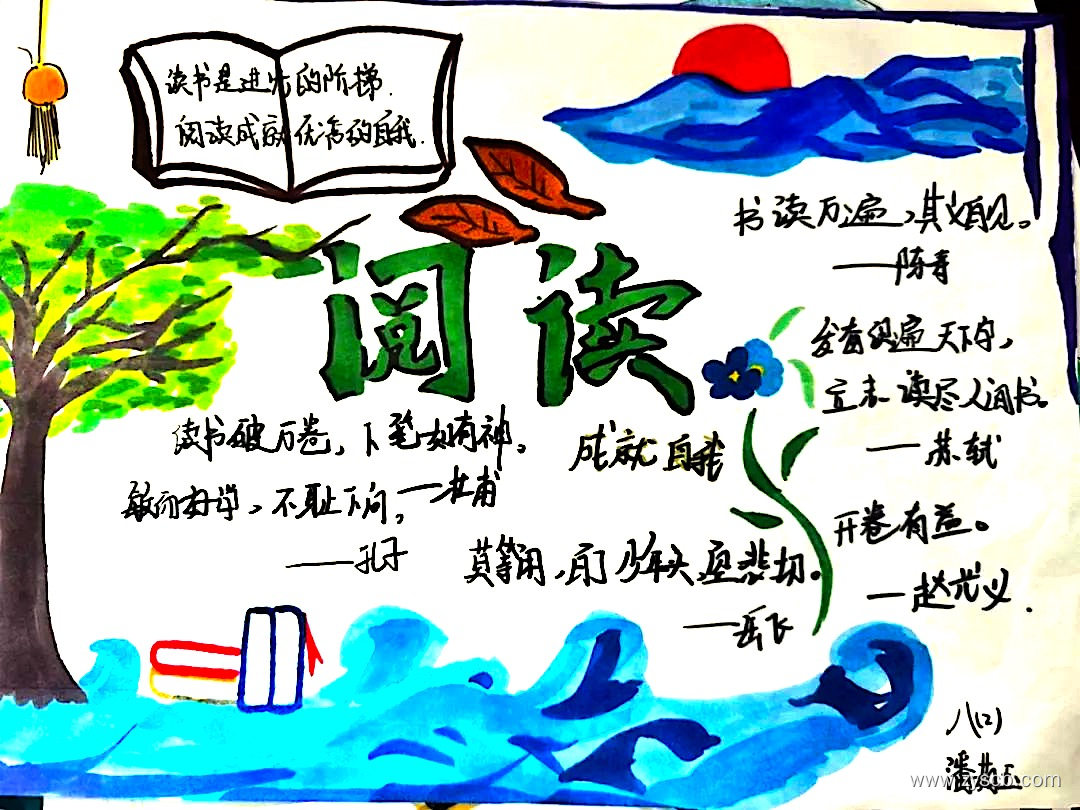 读书是进步的阶梯.
阅读成就优秀的自我.
阅读
成就自我
书读万遍，其义自见。
——陈寿
发奋识遍天下字，
立志读尽人间书。
——苏轼
开卷有益。
——赵光义.
读书破万卷，下笔如有神。
——杜甫
敏而好学，不耻下问，
——孔子
莫等闲，白了少年头，空悲切。
——岳飞
八(2)
潘
www.zyscb.com